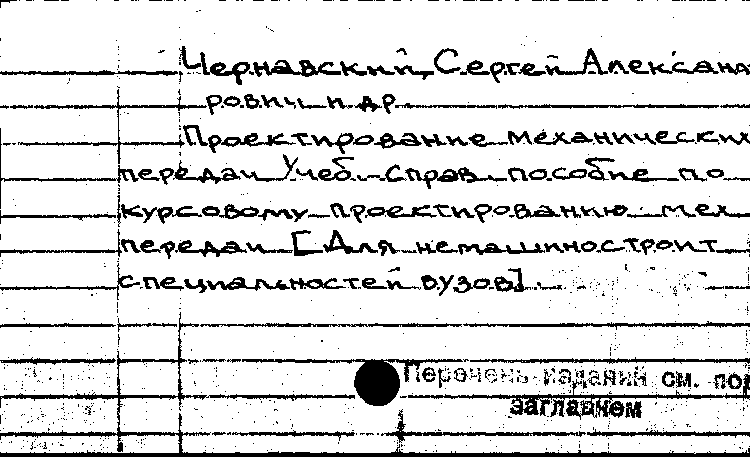 Чернавский, Сергей Александ
рович и др.
Проектирование механических
передач Учеб.-справ. пособие по
курсовому проектированию мех.
передач [Для немашиностроит.
специальностей вузов].
Перечень изданий см. под
заглавием